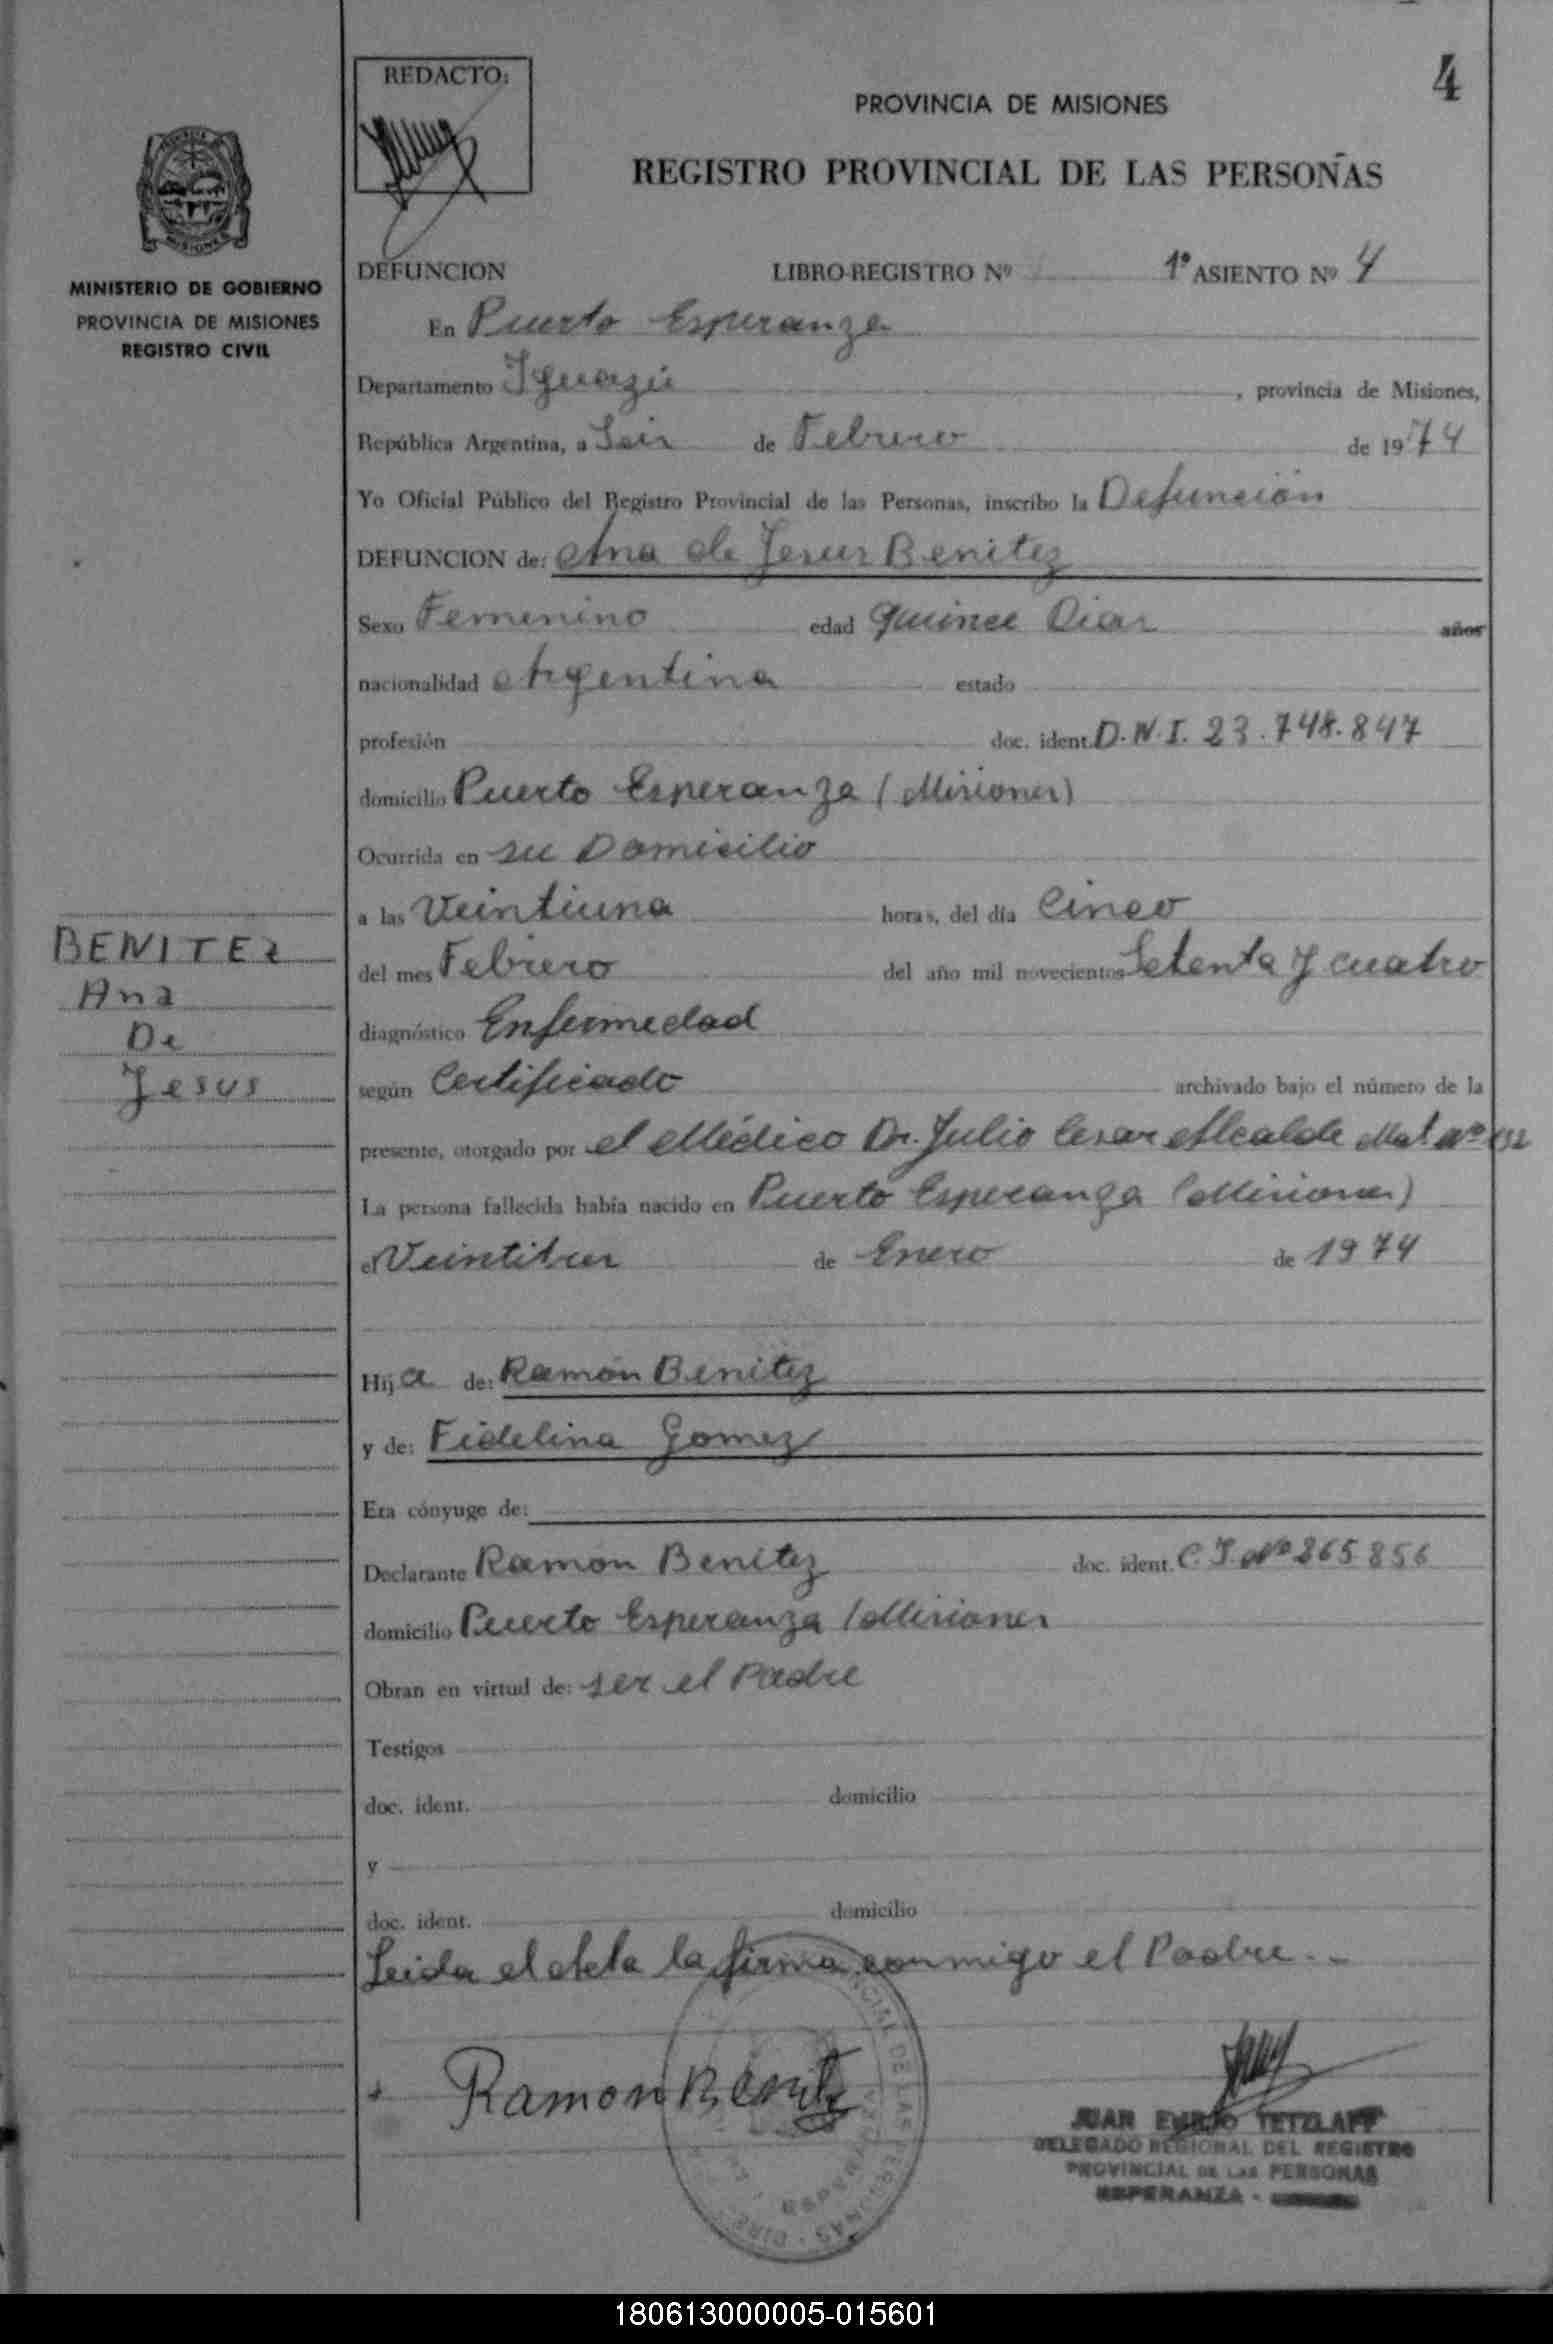 4
REDACTO:
PROVINCIA DE MISIONES
REGISTRO PROVINCIAL DE LAS PERSONAS
MISIONES
MINISTERIO DE GOBIERNO
PROVINCIA DE MISIONES
REGISTRO CIVIL
DEFUNCION LIBRO-REGISTRO Nº 1º ASIENTO Nº 4
En Puerto Esperanza
Departamento Iguazú , provincia de Misiones,
República Argentina, a Seis de Febrero de 1974
Yo Oficial Público del Registro Provincial de las Personas, inscribo la Defunción
DEFUNCION de: Ana de Jesus Benitez
Sexo Femenino edad Quince Dias años
nacionalidad Argentina estado
profesión doc. ident. D.N.I. 23.748.847
domicilio Puerto Esperanza (Misiones)
Ocurrida en su Domicilio
a las Veintiuna horas, del día Cinco
del mes Febrero del año mil novecientos Setenta y cuatro
diagnóstico Enfermedad
según Certificado archivado bajo el número de la
presente, otorgado por el Médico Dr. Julio Cesar Alcalde Mat. nº
La persona fallecida había nacido en Puerto Esperanza (Misiones)
el Veintitres de Enero de 1974
Hija de: Ramón Benitez
y de: Fidelina Gomez
Era cónyuge de:
Declarante Ramón Benitez doc. ident. C.I. Nº 265.856
domicilio Puerto Esperanza (Misiones
Obran en virtud de: ser el Padre
Testigos
doc. ident. domicilio
y
doc. ident. domicilio
Leida el Acta la firma conmigo el Padre.-
BENITEZ
Ana
De
Jesus
Ramon Benitz
JUAN EMILIO TETZLAFF
DELEGADO REGIONAL DEL REGISTRO
PROVINCIAL DE LAS PERSONAS
ESPERANZA -
180613000005-015601